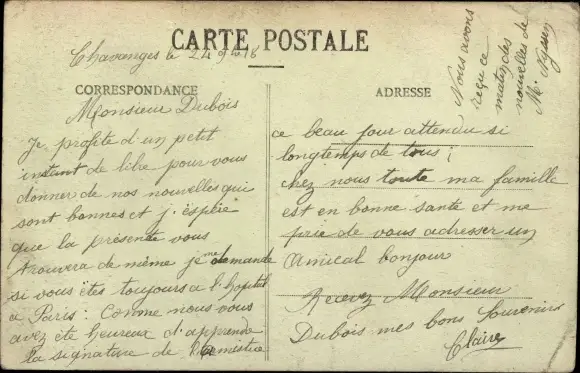 CARTE POSTALE
CORRESPONDANCE
ADRESSE
Chavanges le 24 9bre 18
Monsieur Dubois
Je profite d'un petit
instant de libre pour vous
donner de nos nouvelles qui
sont bonnes et j'espère
que la présente vous
trouvera de même je me demande
si vous êtes toujours a l'hopital
a Paris : Comme nous vous
avez été heureux d'apprendre
la signature de l'armistice
ce beau jour attendu si
longtemps de tous ;
chez nous toute ma famille
est en bonne santé et me
prie de vous adresser un
amical bonjour
Recevez Monsieur
Dubois mes bons souvenirs
Claire
Nous avons
reçu ce
matin des
nouvelles de
M.